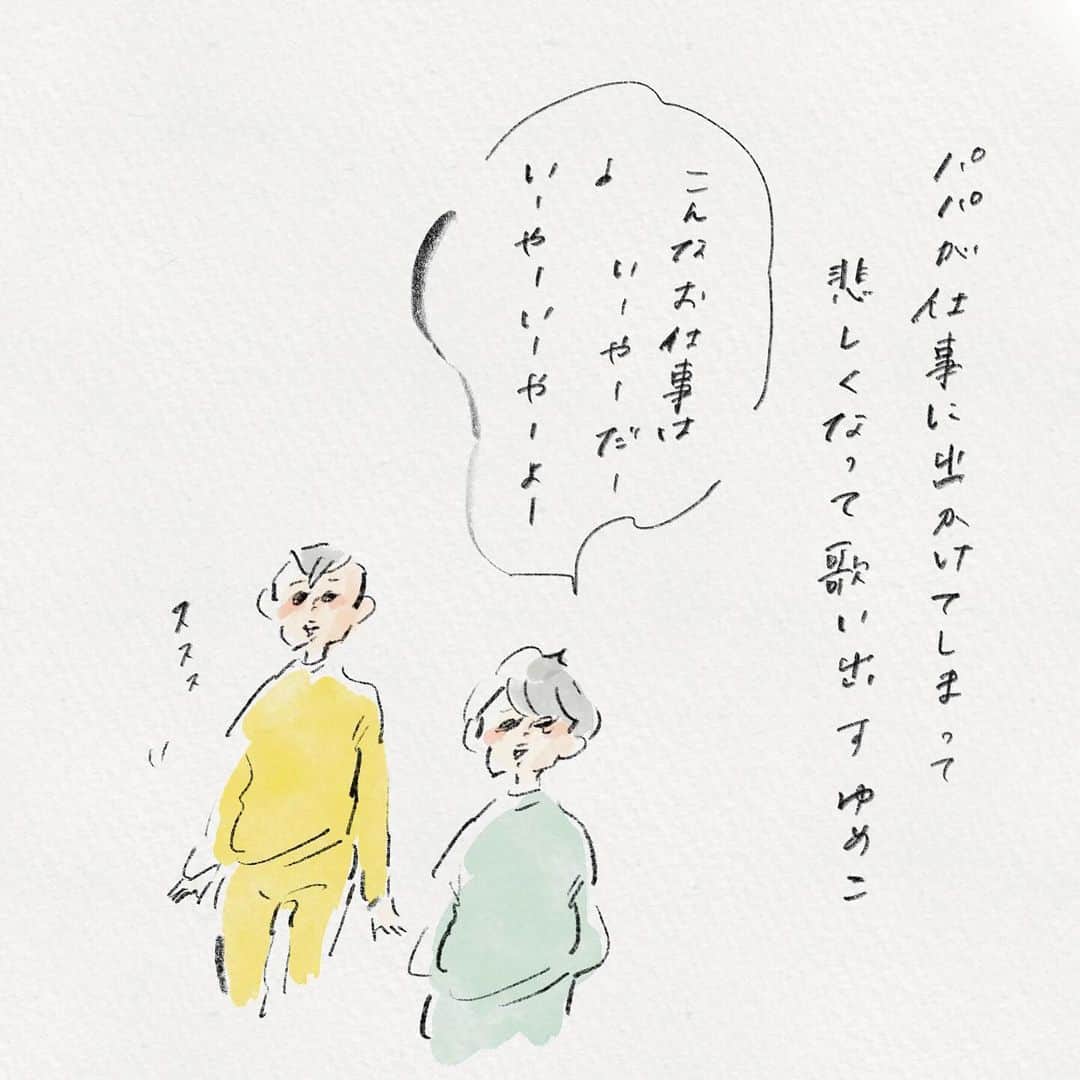 パパが仕事に出かけてしまって
悲しくなって歌い出すゆめこ
こんなお仕事は
いーやーだー
♩
いーやーいーやーよー
ススス